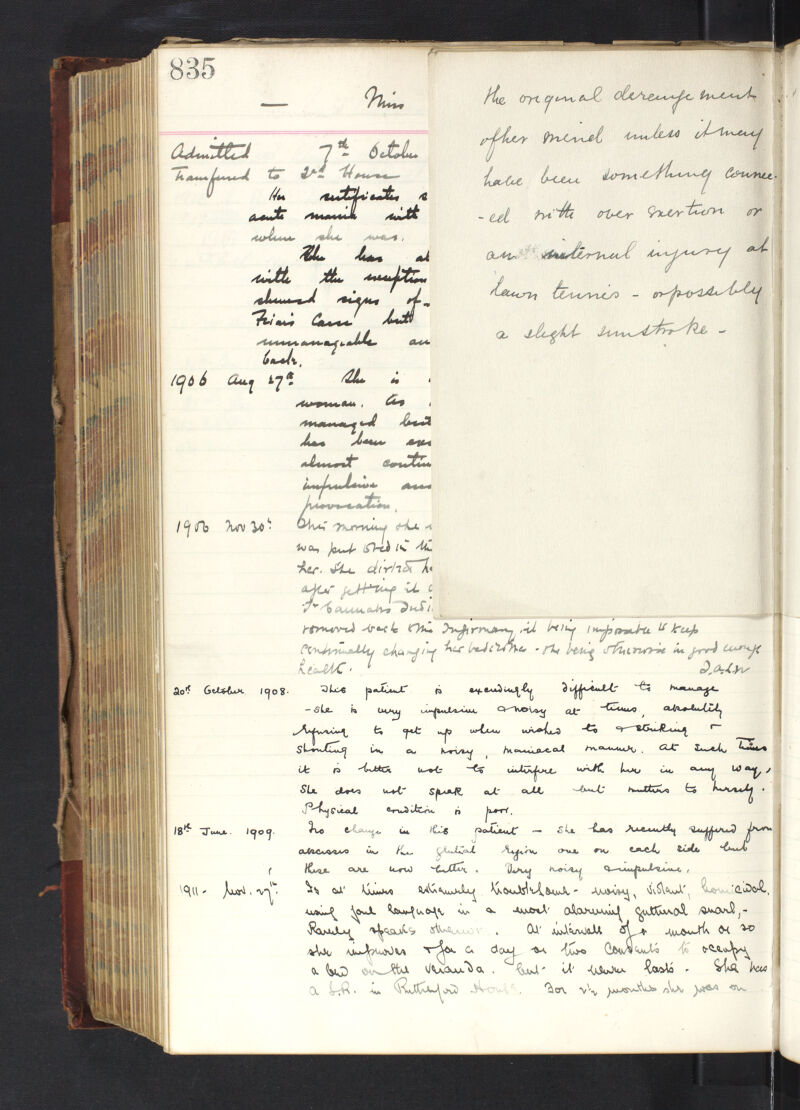 835
— Miss
Admitted 7th October
Transferred to 2nd House
Her certificates s
acute mania with
where she was.
She has al
with the exception
shewed signs of
Friars Carse but
unmanageable an
back.
1906 Aug 27th She is
woman. As
managed but
has been exc
almost contin
impulsive and
provocation.
1906 Nov 30th This morning she
was put to bed in th
her. She
after getting it
removed back to the Infirmary, it being impossible to keep
continually changing her bedclothes - she being otherwise in good enough
health.
20th October 1908. This patient is exceedingly difficult to manage
- she is very impulsive & noisy at times, absolutely
refusing to get up when wished to & striking &
shouting in a noisy, maniacal manner. At such times
it is better not to interfere with her in any way,
She does not speak at all but mutters to herself.
Physical condition is poor.
18th June. 1909. No change in this patient — She has recently suffered from
abscesses in the gluteal region one on each side but
these are now better. Very noisy & impulsive.
1911 - Nov. 27th. Is at times extremely troublesome - noisy, violent, homicidal,
using foul language in a most alarming guttural snarl, -
Rarely speaks otherwise. At intervals of a month or so
she improves & for a day or two consents to occupy
a bed on the veranda. but it never lasts. She has
a S.R. in Rutherford House. For 2½ months she was on
the original derangement
of her mind unless it may
have been something connec-
-ed with over exertion or
an internal injury at
lawn tennis - or possibly
a slight sunstroke -